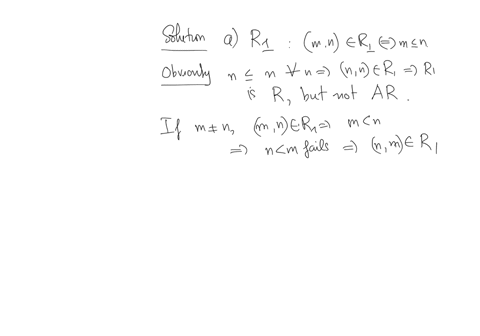 Solution a) R₁ : (m,n) ∈ R₁ ⇔ m ≤ n
Obviously n ≤ n ∀ n ⇒ (n,n) ∈ R₁ ⇒ R₁
is R, but not AR.
If m ≠ n, (m,n) ∈ R₁ ⇒ m < n
⇒ n < m fails ⇒ (n,m) ∈ R₁